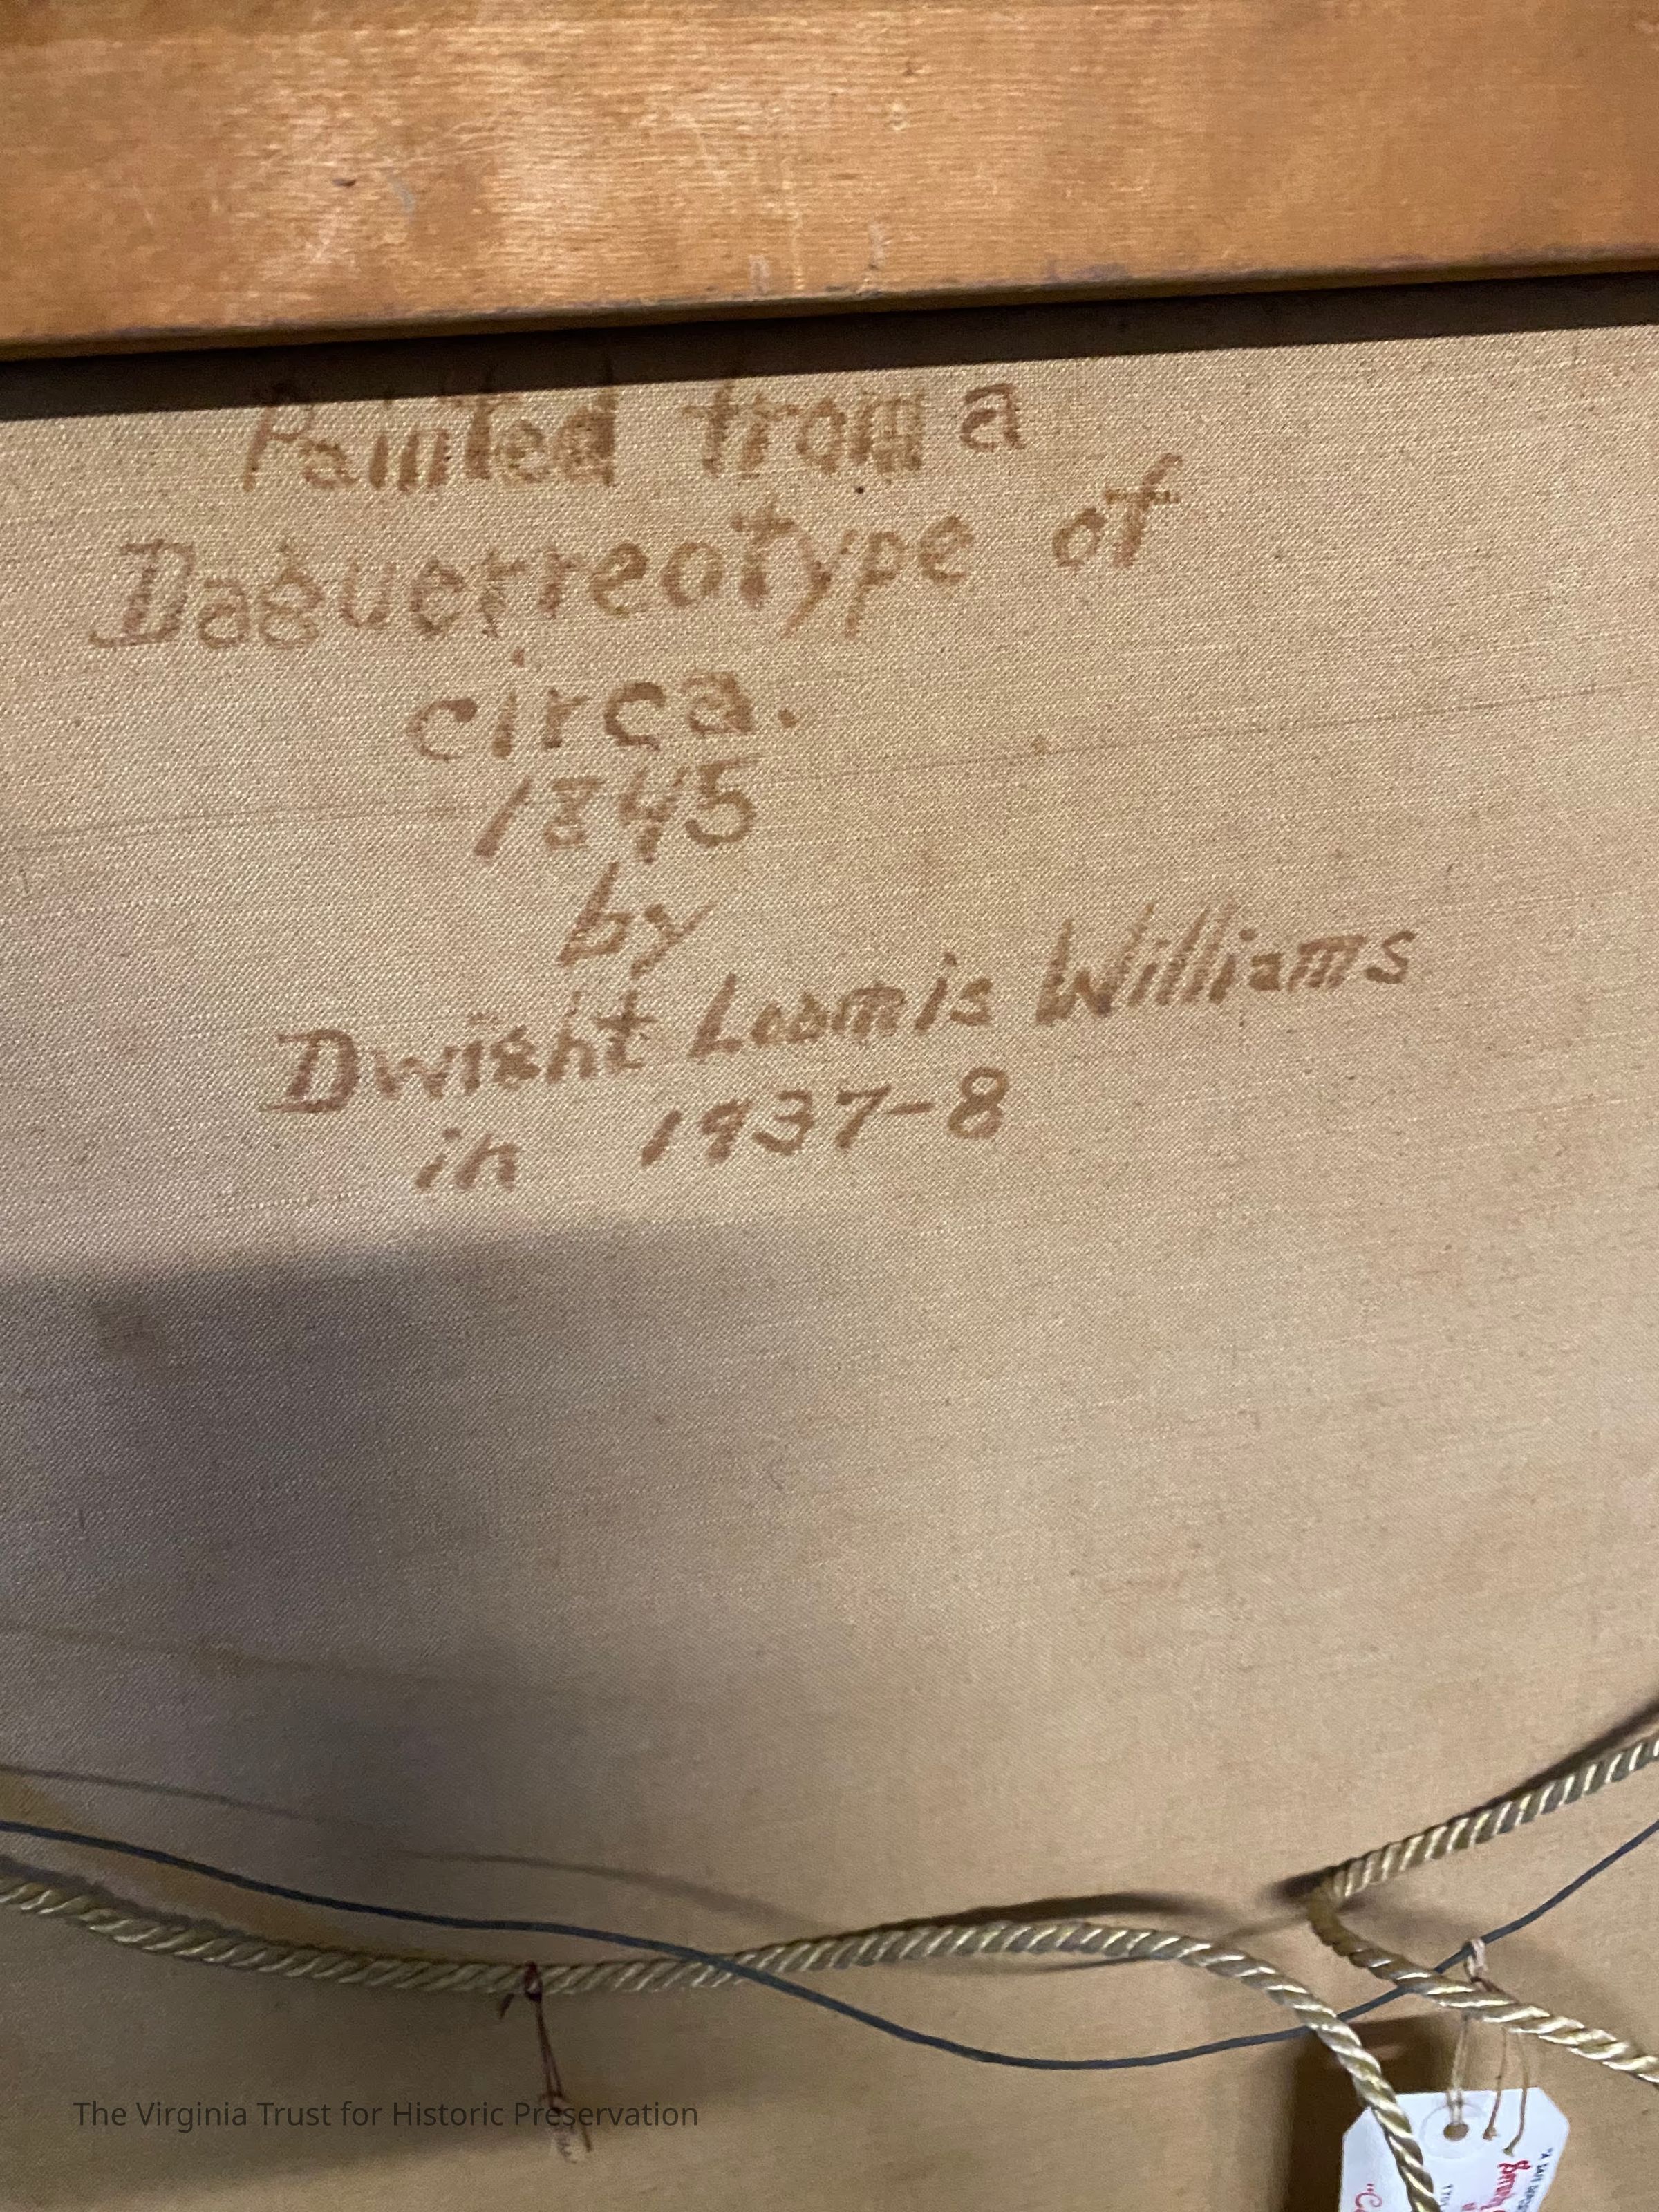 Painted from a
Daguerreotype of
circa.
1845
by
Dwight Loomis Williams
in 1937-8
The Virginia Trust for Historic Preservation